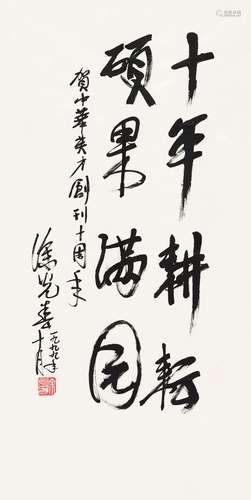 十年耕耘
硕果满园
贺中华英才創刊十周年
徐光春
一九九九年
十月